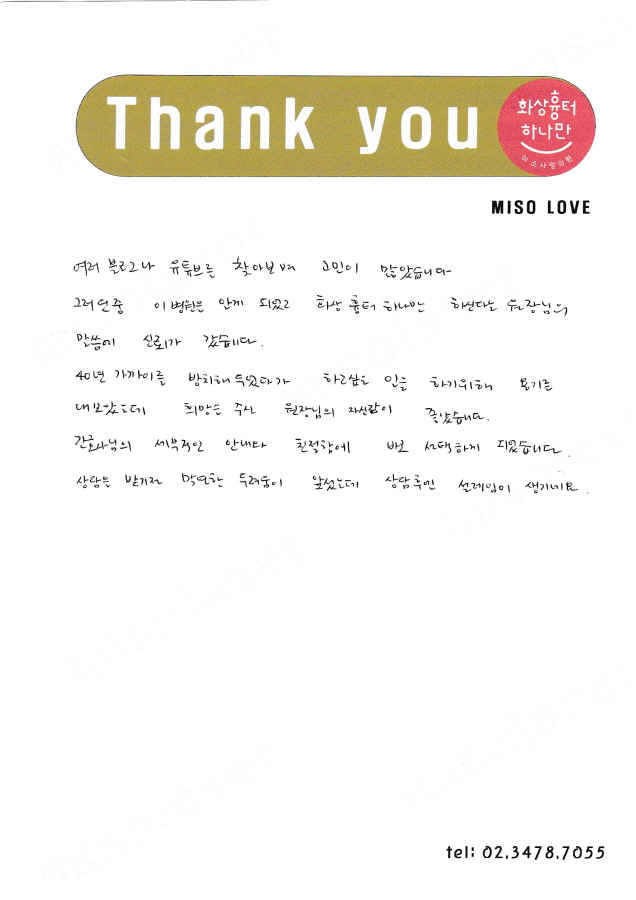 Thank you
화상흉터
하나만
미소사랑의원
MISO LOVE
여러 블로그나 유튜브를 찾아보며 고민이 많았습니다
그러던중 이병원을 알게 되었고 화상흉터 하나만 하신다는 원장님의
말씀에 신뢰가 갔습니다.
40년 가까이를 방치해두었다가 하고싶은 일을 하기위해 용기를
내보았는데 희망을 주신 원장님의 자신감이 좋았습니다.
간호사님의 세부적인 안내와 친절함에 바로 선택하게 되었습니다.
상담을 받기전 막연한 두려움이 앞섰는데 상담후엔 설레임이 생기네요.
tel: 02.3478.7055